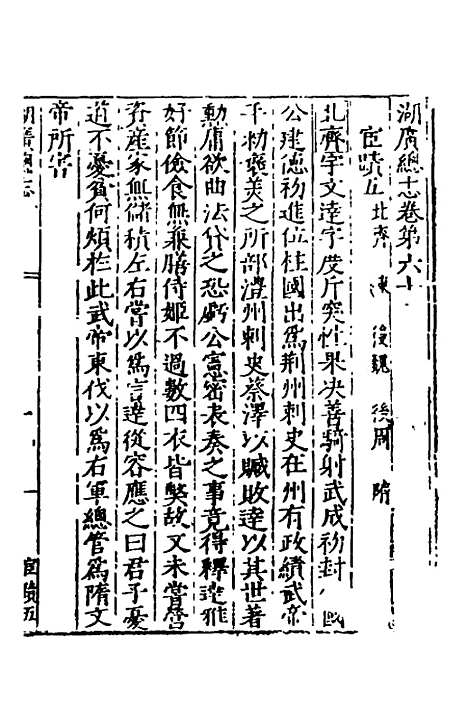 湖廣總志卷第六十
宦蹟五 北齊 陳 後魏 後周 隋
北齊宇文達字度斤突性果决善騎射武成初封 國
公建德初進位柱國出爲荆州刺史在州有政績武帝
手勑褒美之所部澧州刺史蔡澤以贓敗達以其世著
勳庸欲曲法貸之恐虧公憲密表奏之事竟得釋達雅
好節儉食無兼膳侍姬不過數四衣皆獘故又未嘗營
資産家無儲積左右嘗以爲言達從容應之曰君子憂
道不憂貧何煩於此武帝東伐以爲右軍總管爲隋文
帝所害
湖廣總志
宦蹟五